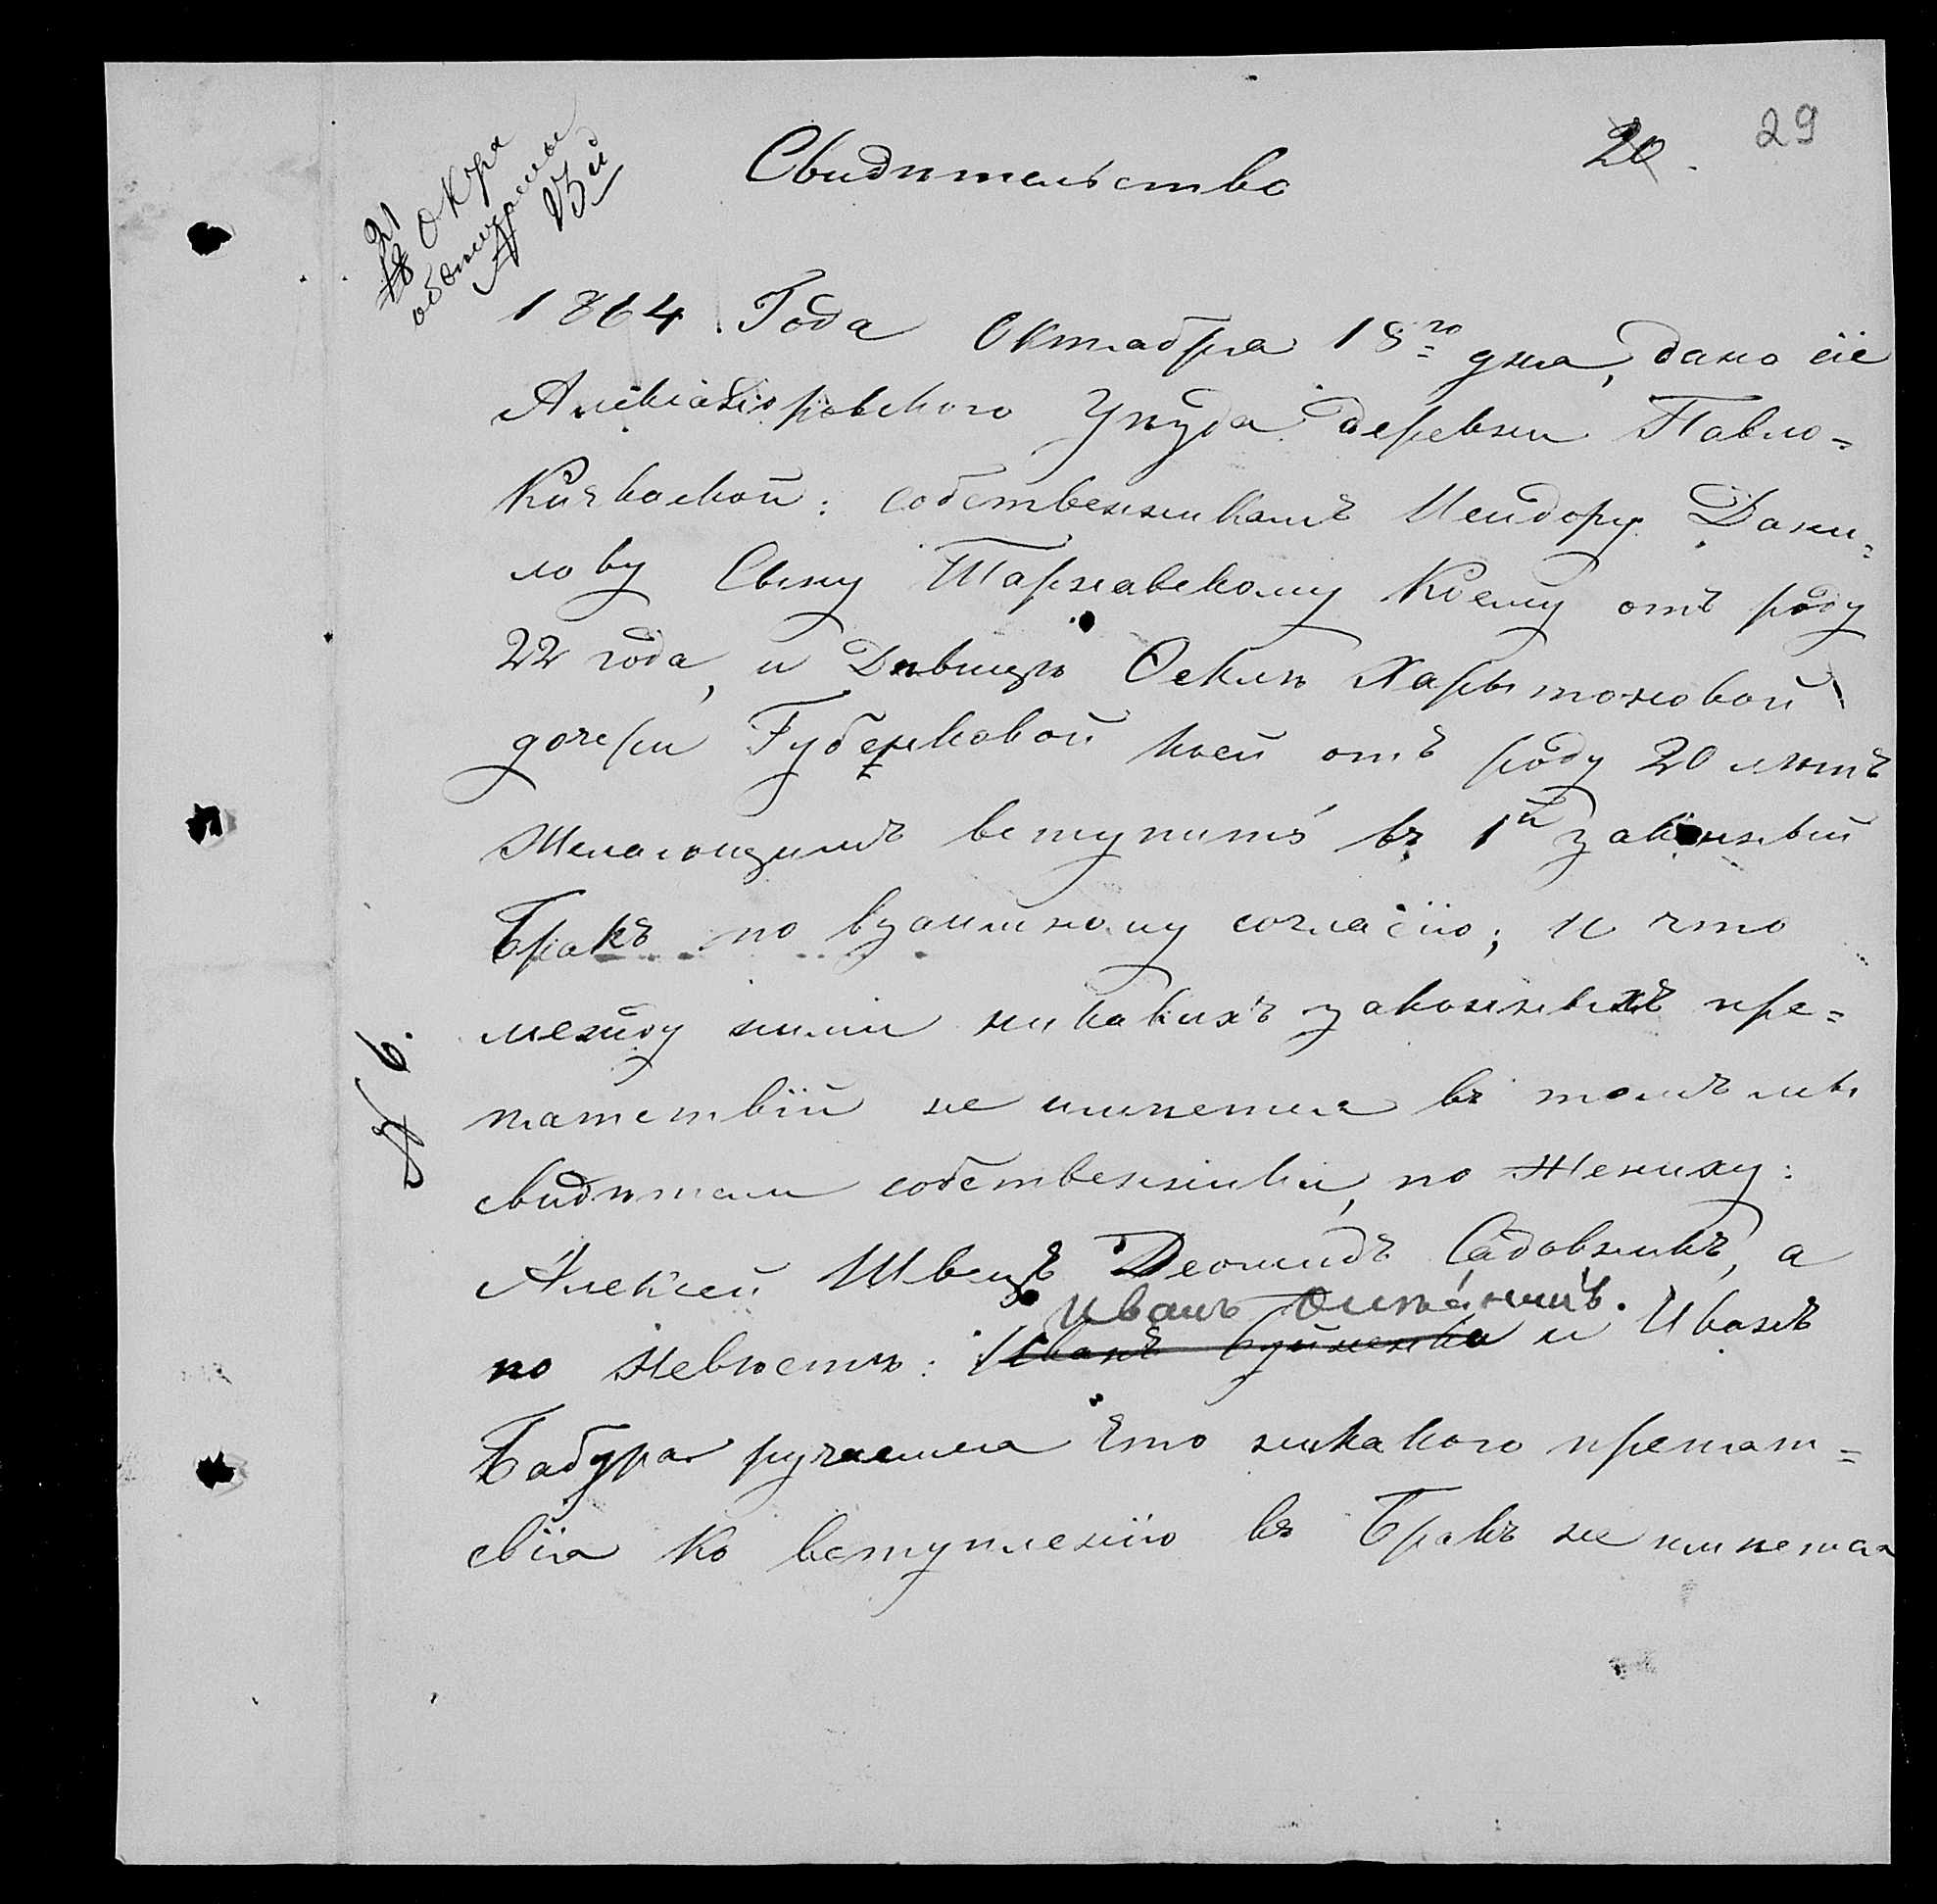 Свидѣтельство
20. 29
21 18 Октр.
обвѣнчаны
№ 13й
1864. Года Октября 18го дня, дано сіе
Александровского Уѣзда деревни Павло=
Кичкаской: собственникамъ Исидору Дани=
лову Сыну Тарнавскому Коему отъ роду
22 года, и Дѣвицѣ Ѳеклѣ Харытоновой
дочери Губенковой коей отъ роду 20 лѣтъ
Желающимъ вступить въ 1й законный
Бракъ по взаимному согласію; и что
между ними никакихъ законныхъ пре=
пятствій не имѣется въ томъ мы
свидѣтели собственники, по Жениху:
Алексей Швецъ Леонидъ Садовникъ, а
Иванъ
по Невѣстѣ: Иванъ и Иванъ
Бабура ручаемся что никакого препят=
свія ко вступленію въ Бракъ не имѣется
№ 6.